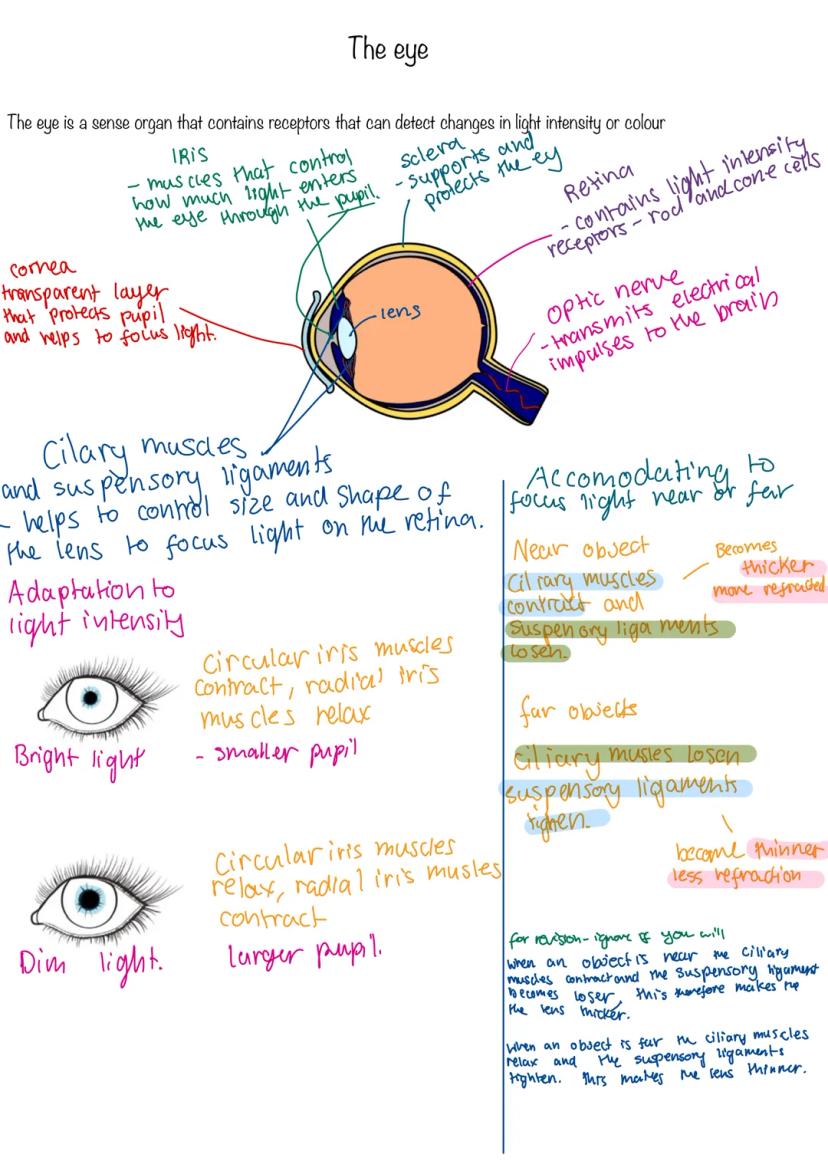 The eye
The eye is a sense organ that contains receptors that can detect changes in light intensity or colour
IRIS
- muscles that control
how much light enters
the eye through the pupil.
sclera
- supports and
protects the ey
Retina
- contains light intensity
receptors - rod and cone cells
cornea
transparent layer
that protects pupil
and helps to focus light.
lens
Optic nerve
- transmits electrical
impulses to the brain
Cilary muscles
and suspensory ligaments
- helps to control size and shape of
the lens to focus light on the retina.
Adaptation to
light intensity
Circular iris muscles
contract, radial iris
muscles relax
Bright light
- smaller pupil
Circular iris muscles
relax, radial iris musles
contract
Dim light.
larger pupil.
Accomodating to
focus light near or far
Near object
Ciliary muscles
contract and
Suspensory ligaments
losen.
Becomes
thicker
more refracted
far objects
ciliary musles losen
suspensory ligaments
tighen.
become thinner
less refraction
for revision - ignore if you will
when an object is near the ciliary
muscles contract and the suspensory ligament
becomes loser, this therefore makes the
the lens thicker.
when an object is far the ciliary muscles
relax and the suspensory ligaments
tighten. This makes the lens thinner.